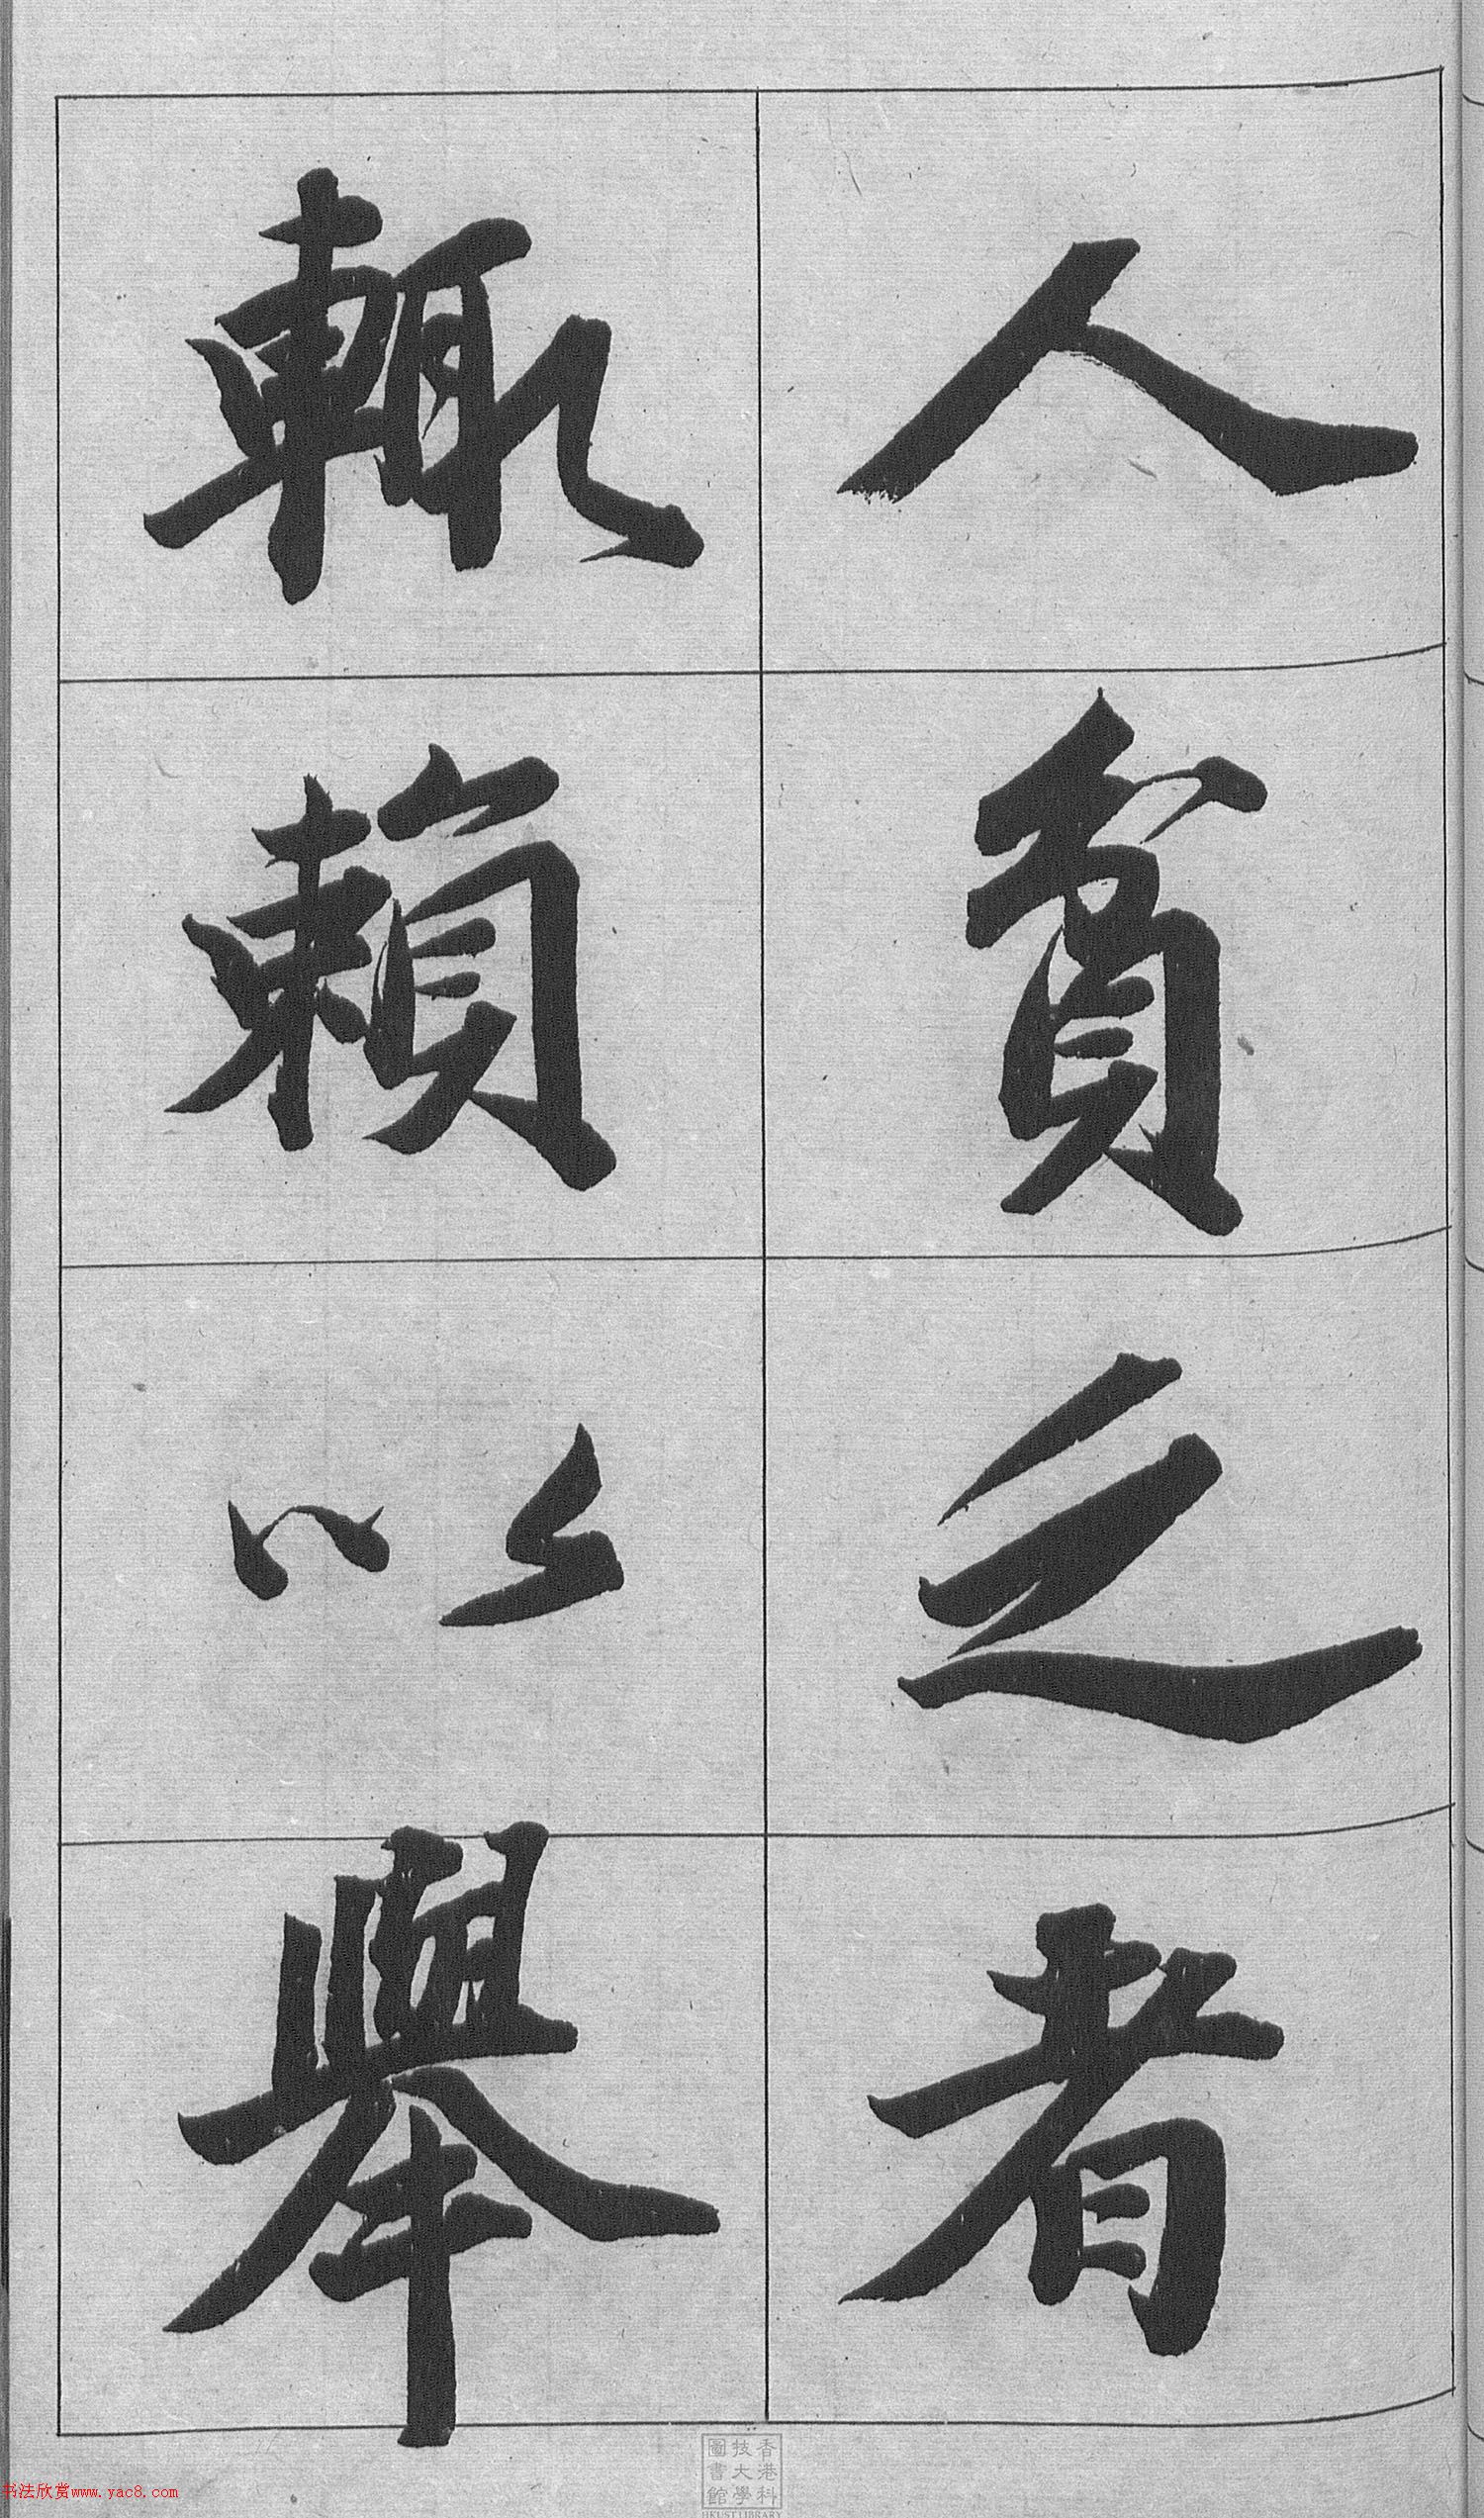 人貧乏者
輒賴以舉
香港科
技大學
圖書館
HKUST LIBRARY
书法欣赏www.yac8.com